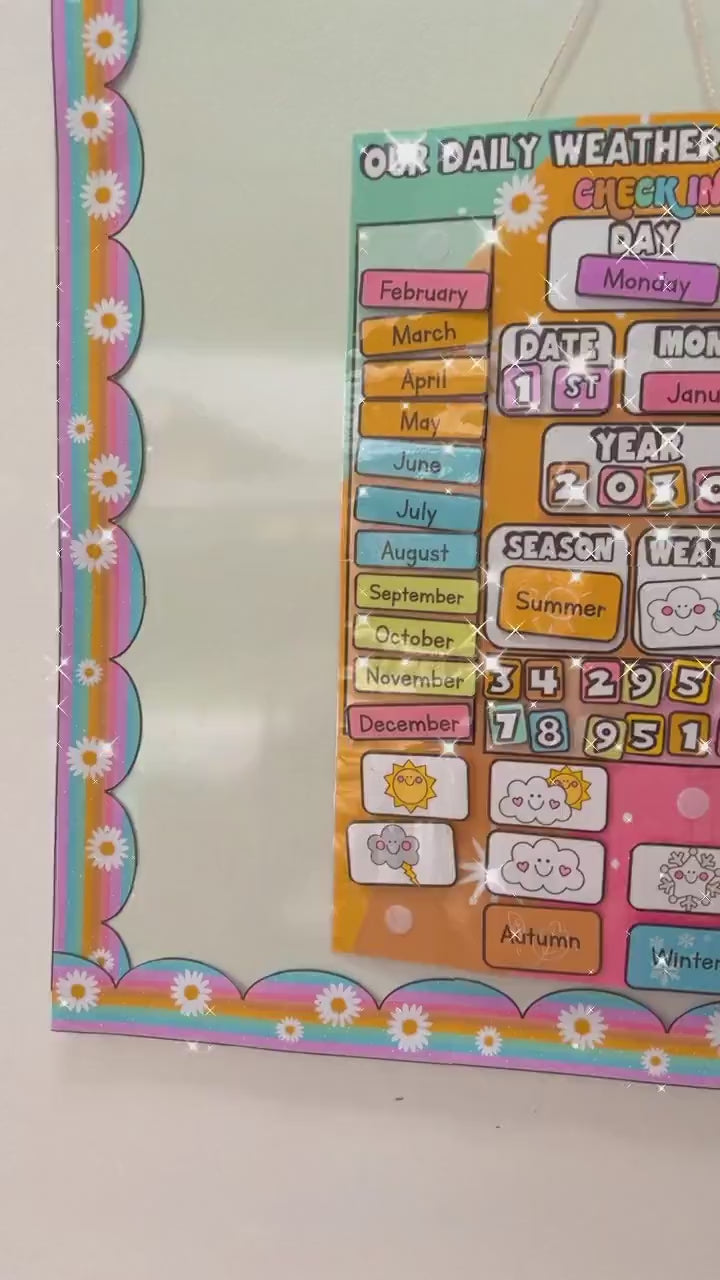 OUR DAILY WEATHER
CHECK IN
DAY
Monday
DATE
1 ST
MON
Janu
YEAR
2030
SEASON
Summer
WEAT
February
March
April
May
June
July
August
September
October
November
December
3 4 2 9 5
7 8 9 5 1
Autumn
Winter